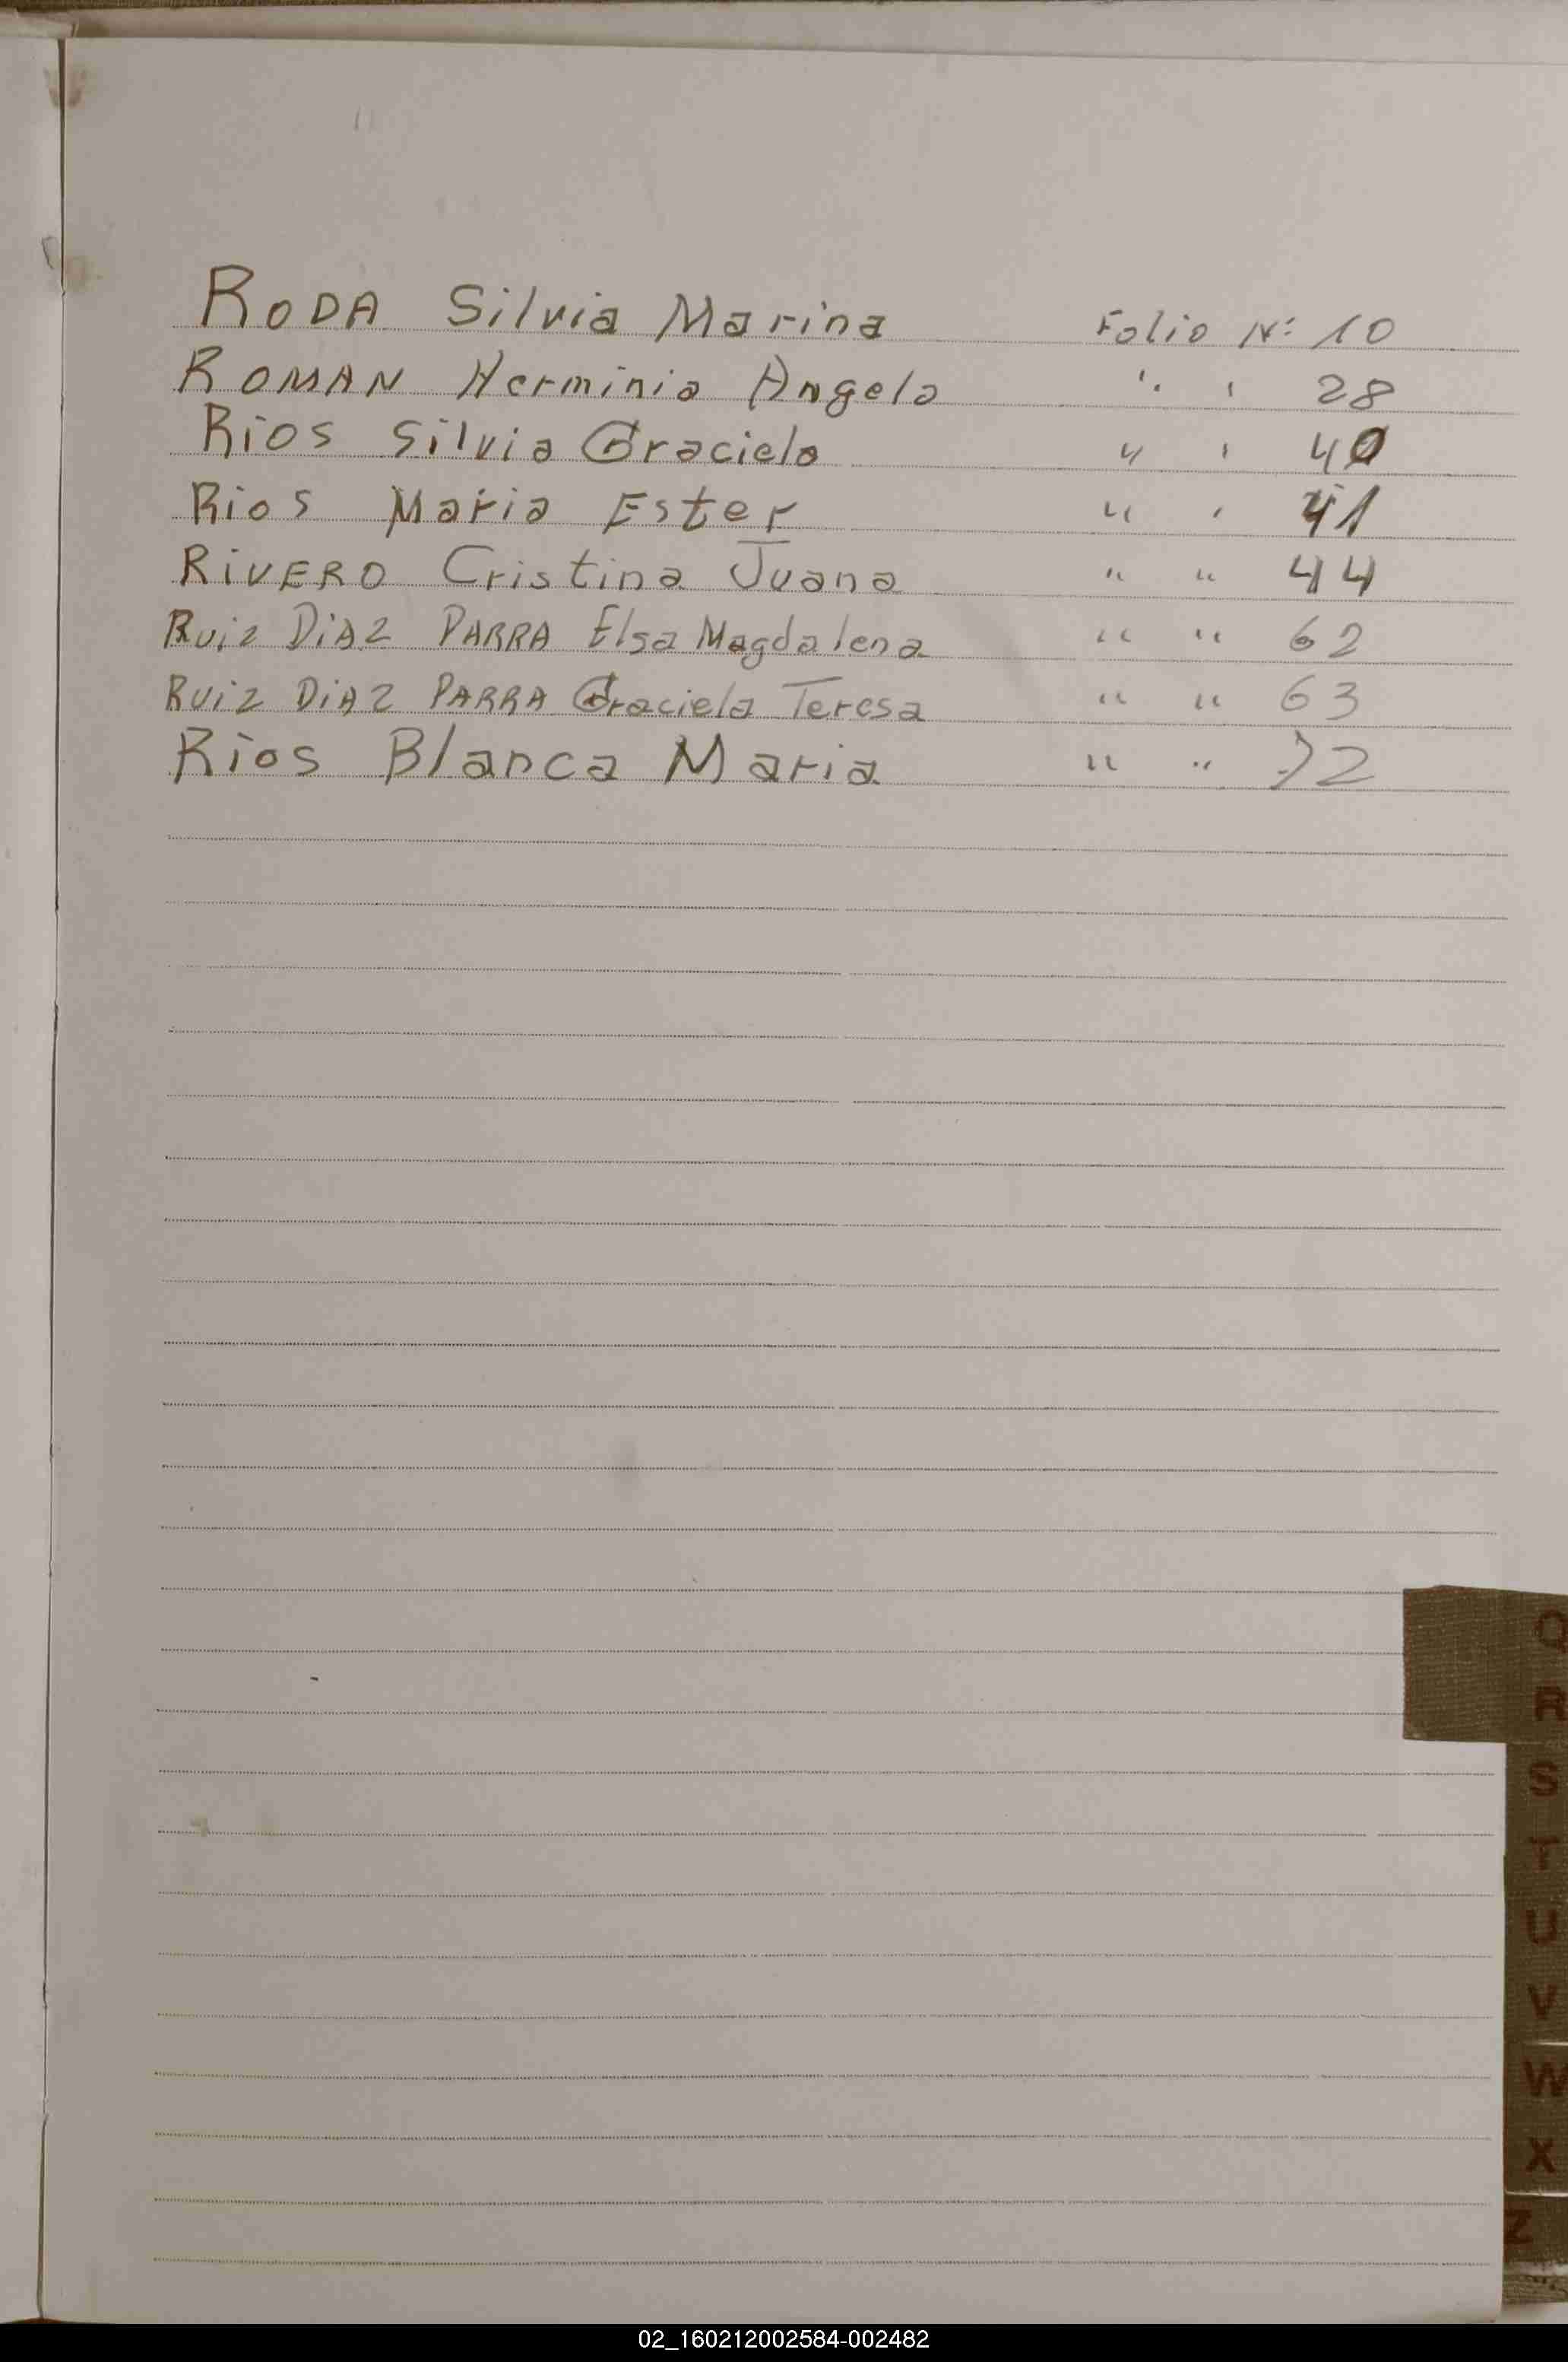 RODA Silvia Marina Folio Nº 10
ROMAN Herminia Angela " " 28
Rios Silvia Graciela " " 40
Rios Maria Ester " " 41
RIVERO Cristina Juana " " 44
Ruiz DIAZ PARRA Elsa Magdalena " " 62
RUIZ DIAZ PARRA Graciela Teresa " " 63
Rios Blanca Maria " " 72
Q
R
S
T
U
V
W
X
Z
02_160212002584-002482